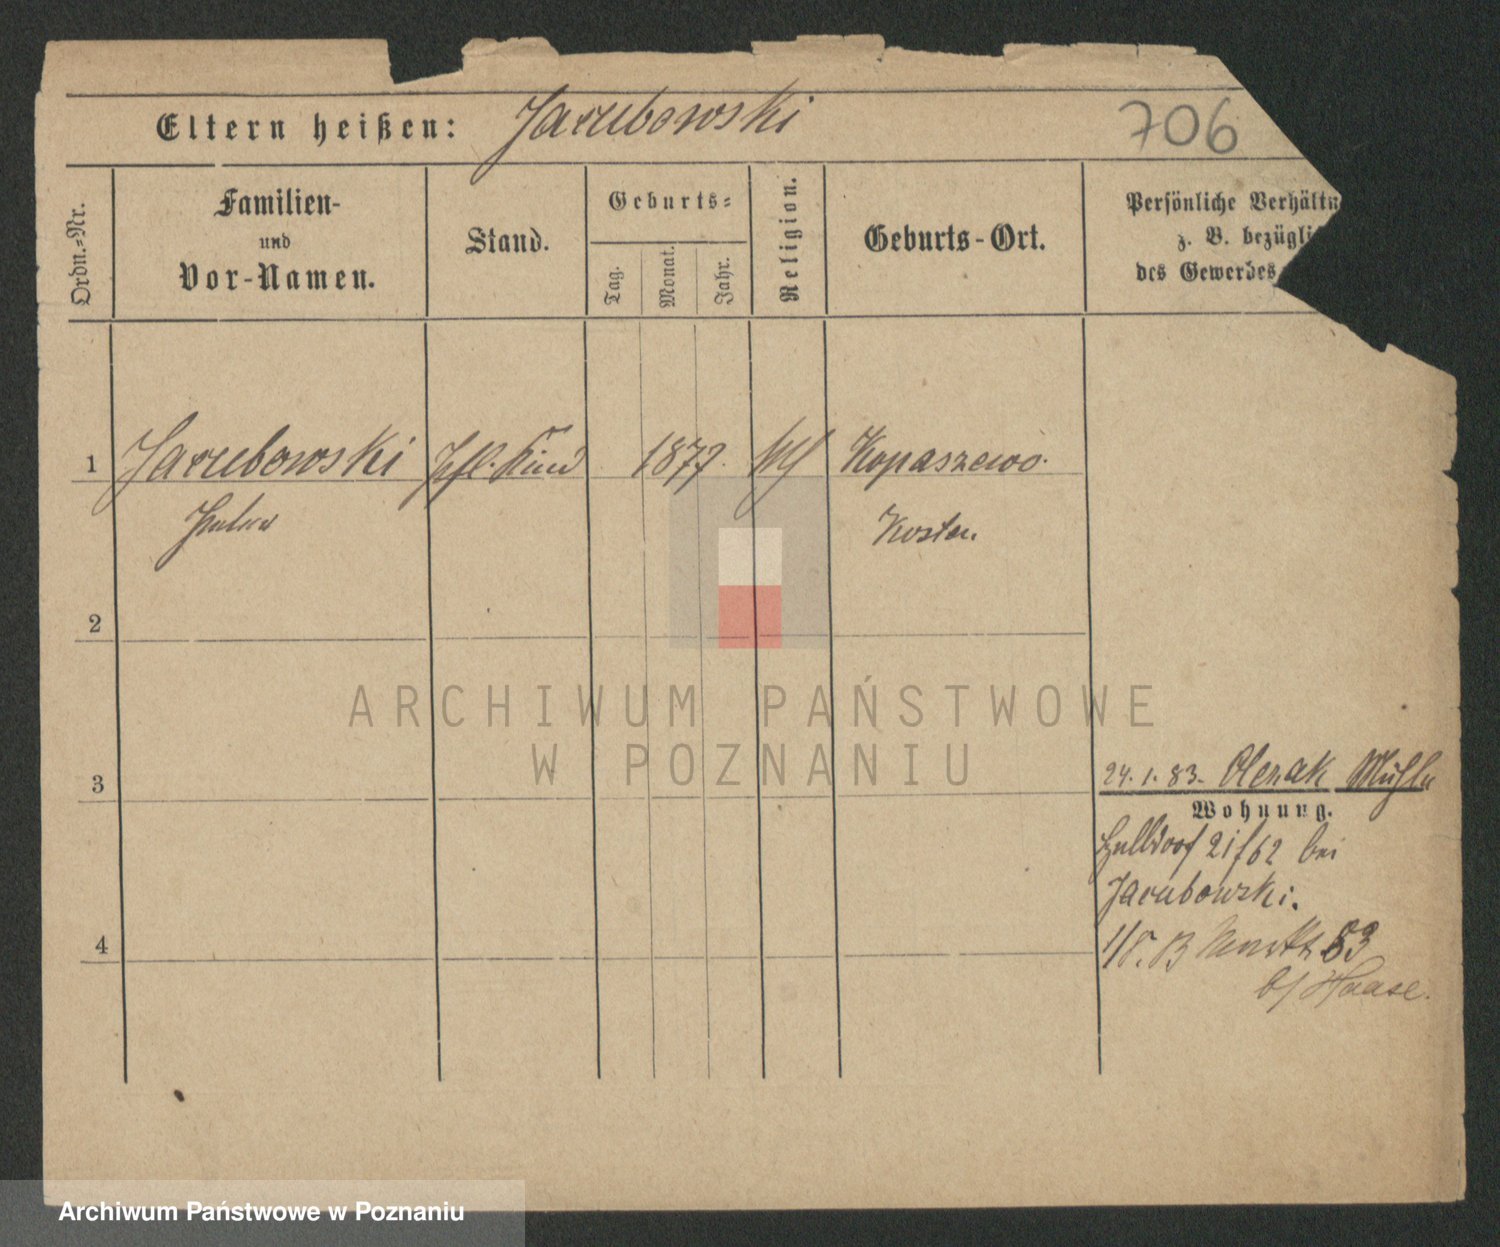 Eltern heißen: Jarubowski
706
Ordn.-Nr.
Familien-
und
Vor-Namen.
Stand.
Geburts-
Tag.
Monat.
Jahr.
Religion.
Geburts-Ort.
Persönliche Verhältn
z. B. bezügli
des Gewerbes
1 Jarubowski Pfl. Kind 1877. Kopaszewo.
Kosten.
2
3
24. 1. 83.
Wohnung.
21/62 bei
Jarubowski.
4
83
b/ Haase.
ARCHIWUM PAŃSTWOWE
W POZNANIU
Archiwum Państwowe w Poznaniu